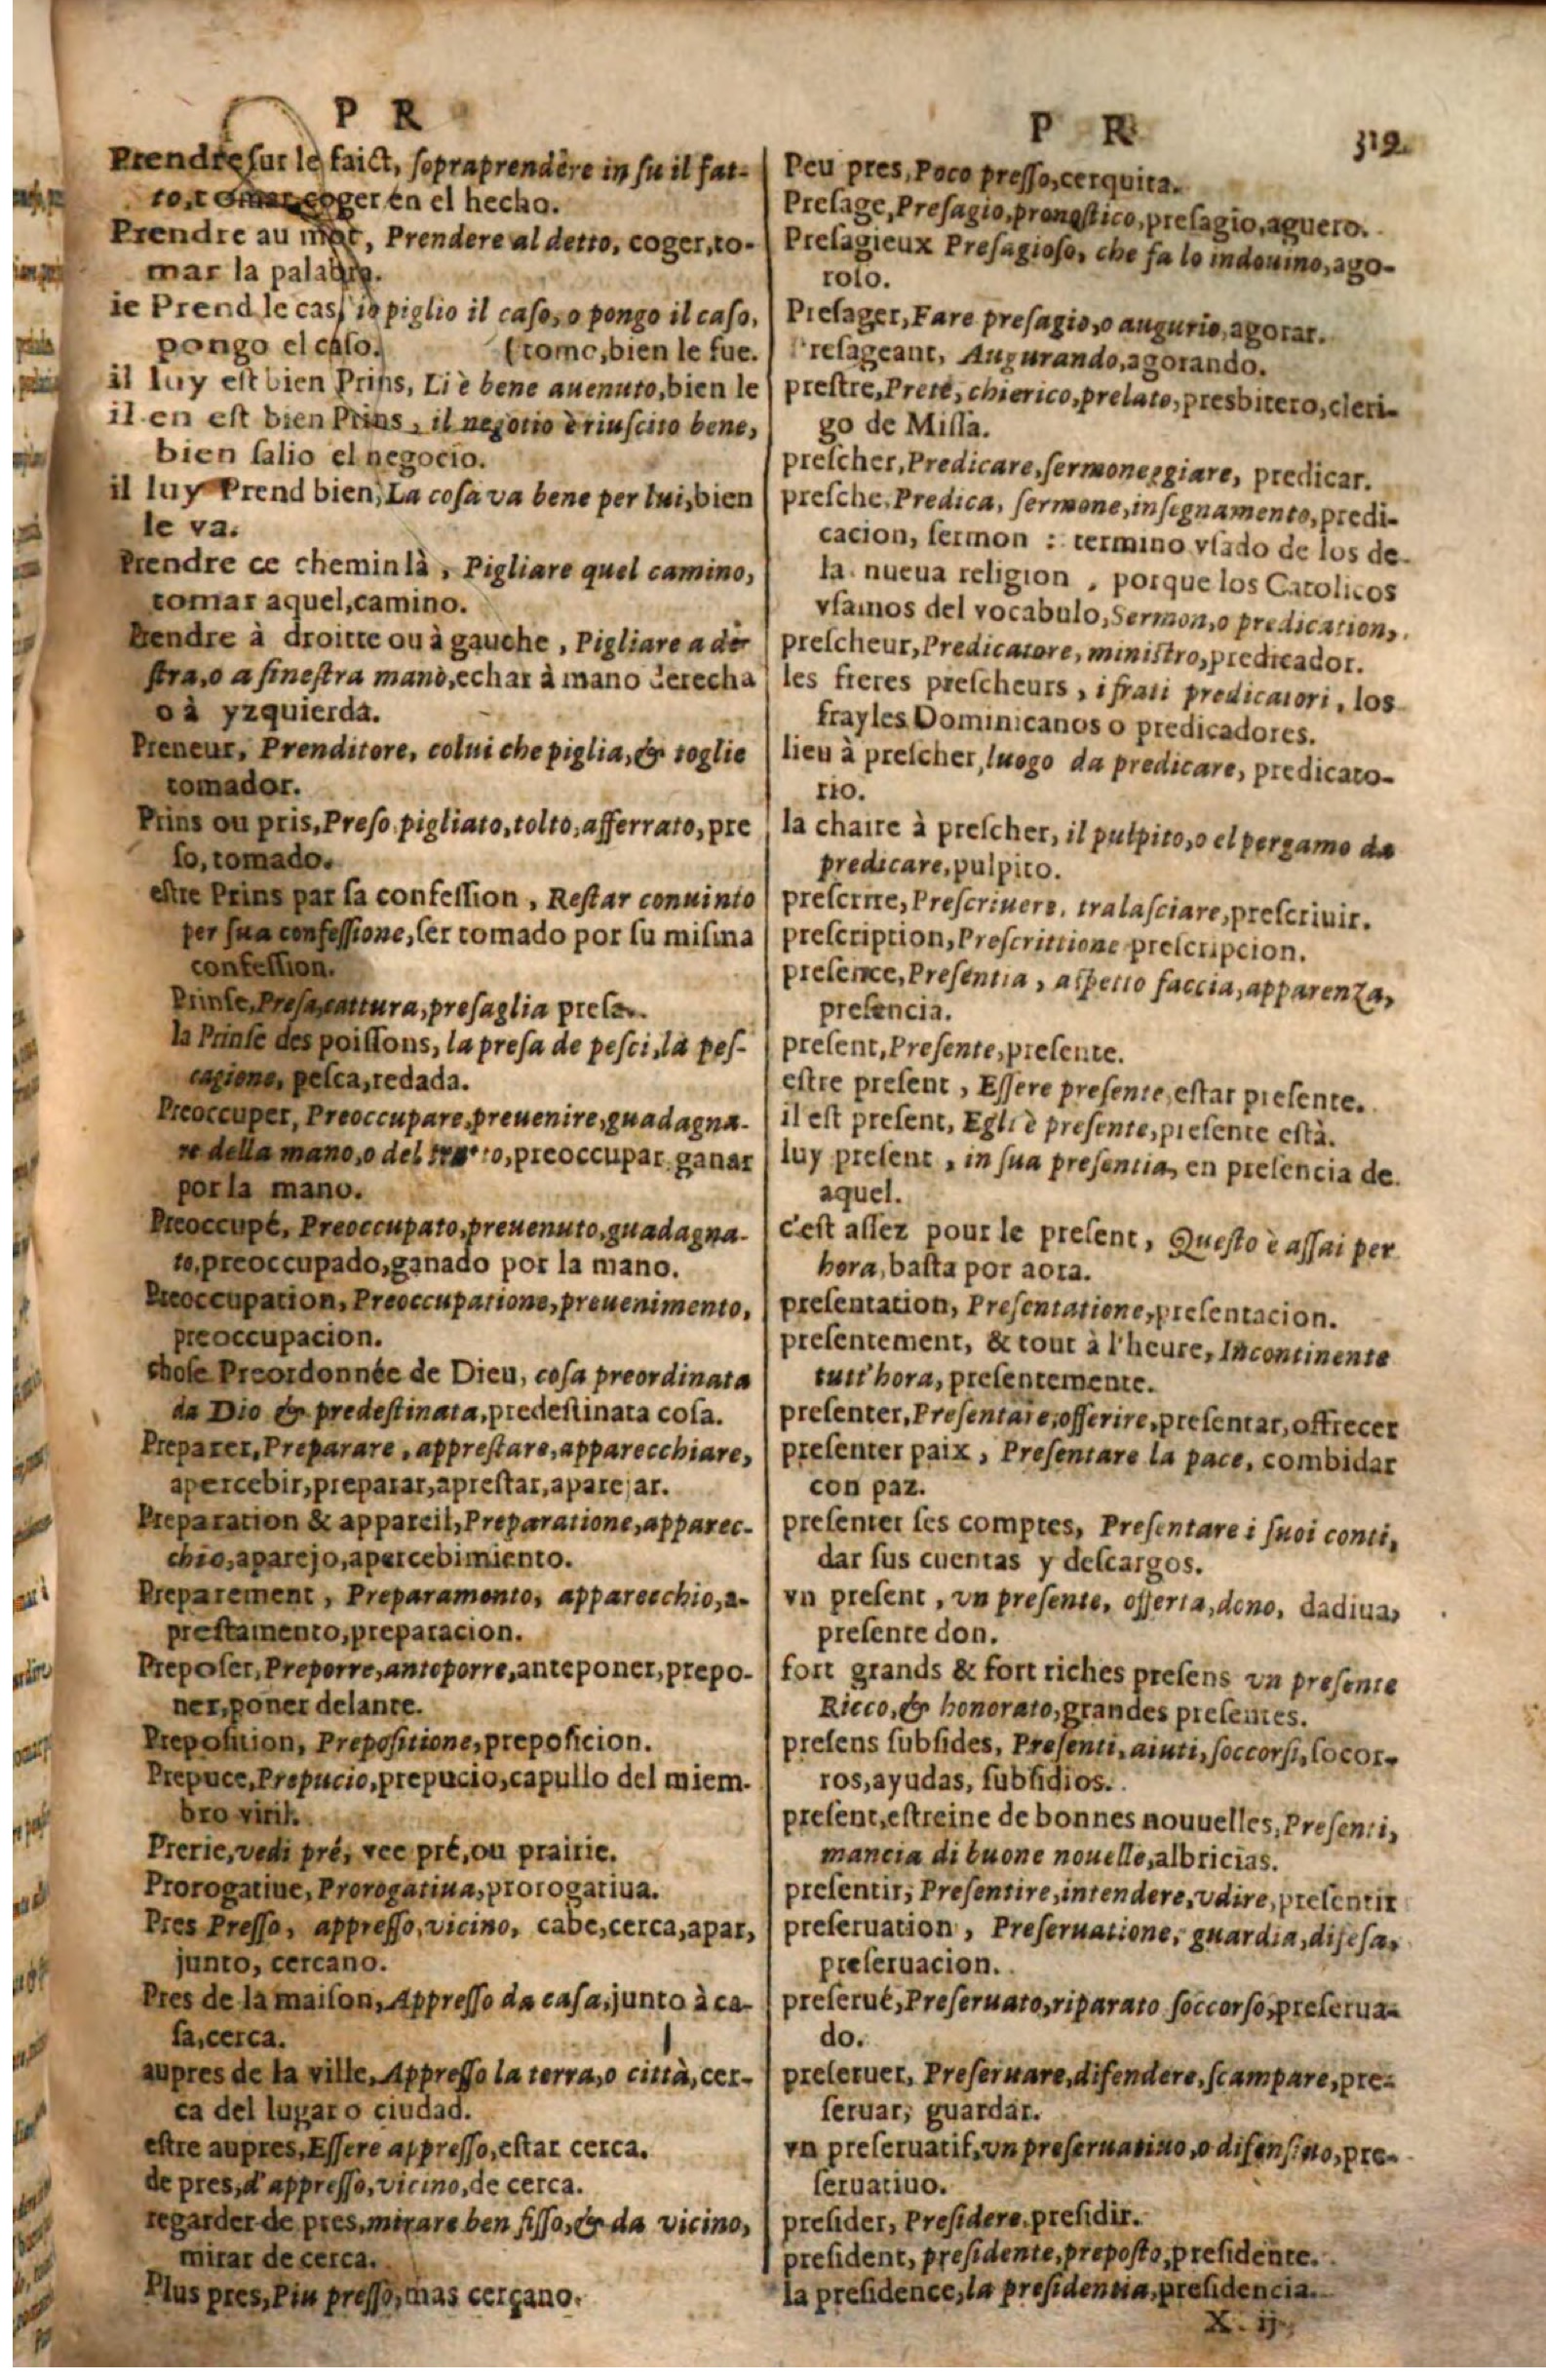 P R
Prendre sur le faict, sopraprendere in su il fat-
to, tomar, coger en el hecho.
Prendre au mot, Prendere al detto, coger, to-
mar la palabra.
ie Prend le cas, io piglio il caso, o pongo il caso,
pongo el caso. (tomo, bien le fue.
il luy est bien Prins, Li è bene auenuto, bien le
il en est bien Prins, il negotio è riuscito bene,
bien salio el negocio.
il luy Prend bien, La cosa va bene per lui, bien
le va.
Prendre ce chemin là, Pigliare quel camino,
tomar aquel, camino.
Prendre à droitte ou à gauche, Pigliare a de-
stra, o a sinestra mano, echar à mano derecha
o à yzquierda.
Preneur, Prenditore, colui che piglia, & toglie
tomador.
Prins ou pris, Preso pigliato, tolto, afferrato, pre
so, tomado.
estre Prins par sa confession, Restar conuinto
per sua confessione, ser tomado por su misma
confession.
Prinse, Presa, cattura, presaglia presa.
la Prinse des poissons, la presa de pesci, la pes-
cagione, pesca, redada.
Preoccuper, Preoccupare, preuenire, guadagna-
re della mano, o del tratto, preoccupar, ganar
por la mano.
Preoccupé, Preoccupato, preuenuto, guadagna-
to, preoccupado, ganado por la mano.
Preoccupation, Preoccupatione, preuenimento,
preoccupacion.
chose Preordonnée de Dieu, cosa preordinata
da Dio & predestinata, predestinata cosa.
Preparer, Preparare, apprestare, apparecchiare,
apercebir, preparar, aprestar, aparejar.
Preparation & appareil, Preparatione, apparec-
chio, aparejo, apercebimiento.
Preparement, Preparamento, apparecchio, a-
prestamento, preparacion.
Preposer, Preporre, anteporre, anteponer, prepo-
ner, poner delante.
Preposition, Prepositione, preposicion.
Prepuce, Prepucio, prepucio, capullo del miem-
bro viril.
Prerie, vedi pré, vee pré, ou prairie.
Prorogatiue, Prorogatiua, prorogatiua.
Pres Presso, appresso, vicino, cabe, cerca, apar,
junto, cercano.
Pres de la maison, Appresso da casa, junto à ca-
sa, cerca.
aupres de la ville, Appresso la terra, o città, cer-
ca del lugar o ciudad.
estre aupres, Essere appresso, estar cerca.
de pres, d'appresso, vicino, de cerca.
regarder de pres, mirare ben fisso, & da vicino,
mirar de cerca.
Plus pres, Piu presso, mas cerçano.
P R 319
Peu pres, Poco presso, cerquita.
Presage, Presagio, pronostico, presagio, aguero.
Presagieux Presagioso, che fa lo indouino, ago-
roso.
Presager, Fare presagio, o augurio, agorar.
Presageant, Augurando, agorando.
prestre, Prete, chierico, prelato, presbitero, cleri-
go de Missa.
prescher, Predicare, sermoneggiare, predicar.
presche, Predica, sermone, insegnamento, predi-
cacion, sermon : termino vsado de los de
la nueua religion, porque los Catolicos
vsamos del vocabulo, Sermon, o predication,
prescheur, Predicatore, ministro, predicador.
les freres prescheurs, i frati predicatori, los
frayles Dominicanos o predicadores.
lieu à prescher, luogo da predicare, predicato-
rio.
la chaire à prescher, il pulpito, o el pergamo da
predicare, pulpito.
prescrire, Prescriuere, tralasciare, prescriuir.
prescription, Prescrittione prescripcion.
presence, Presentia, aspetto faccia, apparenza,
presencia.
present, Presente, presente.
estre present, Essere presente, estar presente.
il est present, Egli è presente, presente està.
luy present, in sua presentia, en presencia de
aquel.
c'est assez pour le present, Questo è assai per
hora, basta por aora.
presentation, Presentatione, presentacion.
presentement, & tout à l'heure, Incontinente
tutt'hora, presentemente.
presenter, Presentare, offerire, presentar, offrecer
presenter paix, Presentare la pace, combidar
con paz.
presenter ses comptes, Presentare i suoi conti,
dar sus cuentas y descargos.
vn present, vn presente, offerta, dono, dadiua,
presente don.
fort grands & fort riches presens vn presente
Ricco, & honorato, grandes presentes.
presens subsides, Presenti, aiuti, soccorsi, socor-
ros, ayudas, subsidios.
present, estreine de bonnes nouuelles, Presenti,
mancia di buone nouelle, albricias.
presentir, Presentire, intendere, vdire, presentir
preseruation, Preseruatione, guardia, difesa,
preseruacion.
preserué, Preseruato, riparato soccorso, preserua-
do.
preseruer, Preseruare, difendere, scampare, pre-
seruar, guardar.
vn preseruatif, vn preseruatiuo, o difensiuo, pre-
seruatiuo.
presider, Presidere, presidir.
president, presidente, preposto, presidente.
la presidence, la presidentia, presidencia.
X ij